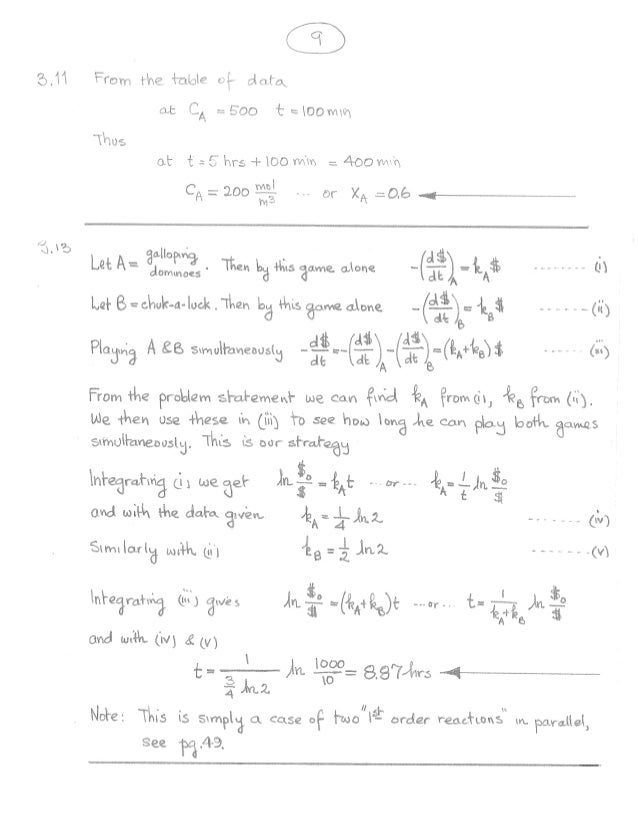 9
3.11 From the table of data
at C_A = 500 t = 100 min
Thus
at t = 5 hrs + 100 min = 400 min
C_A = 200 mol/m³ ... or X_A = 0.6
3.13
Let A = galloping dominoes. Then by this game alone -(d$/dt)_A = k_A $ ........ (i)
Let B = chuk-a-luck. Then by this game alone -(d$/dt)_B = k_B $ ...... (ii)
Playing A & B simultaneously -d$/dt = -(d$/dt)_A - (d$/dt)_B = (k_A + k_B) $ ...... (iii)
From the problem statement we can find k_A from (i), k_B from (ii).
We then use these in (iii) to see how long he can play both games
simultaneously. This is our strategy
Integrating (i) we get ln $₀/$ = k_A t ... or ... k_A = 1/t ln $₀/$
and with the data given k_A = 1/4 ln 2 ....... (iv)
Similarly with (ii) k_B = 1/2 ln 2 ....... (v)
Integrating (iii) gives ln $₀/$ = (k_A + k_B) t ... or ... t = 1/(k_A + k_B) ln $₀/$
and with (iv) & (v)
t = 1/(3/4 ln 2) ln 1000/10 = 8.87 hrs
Note: This is simply a case of two "1st order reactions" in parallel,
see pg. 49.